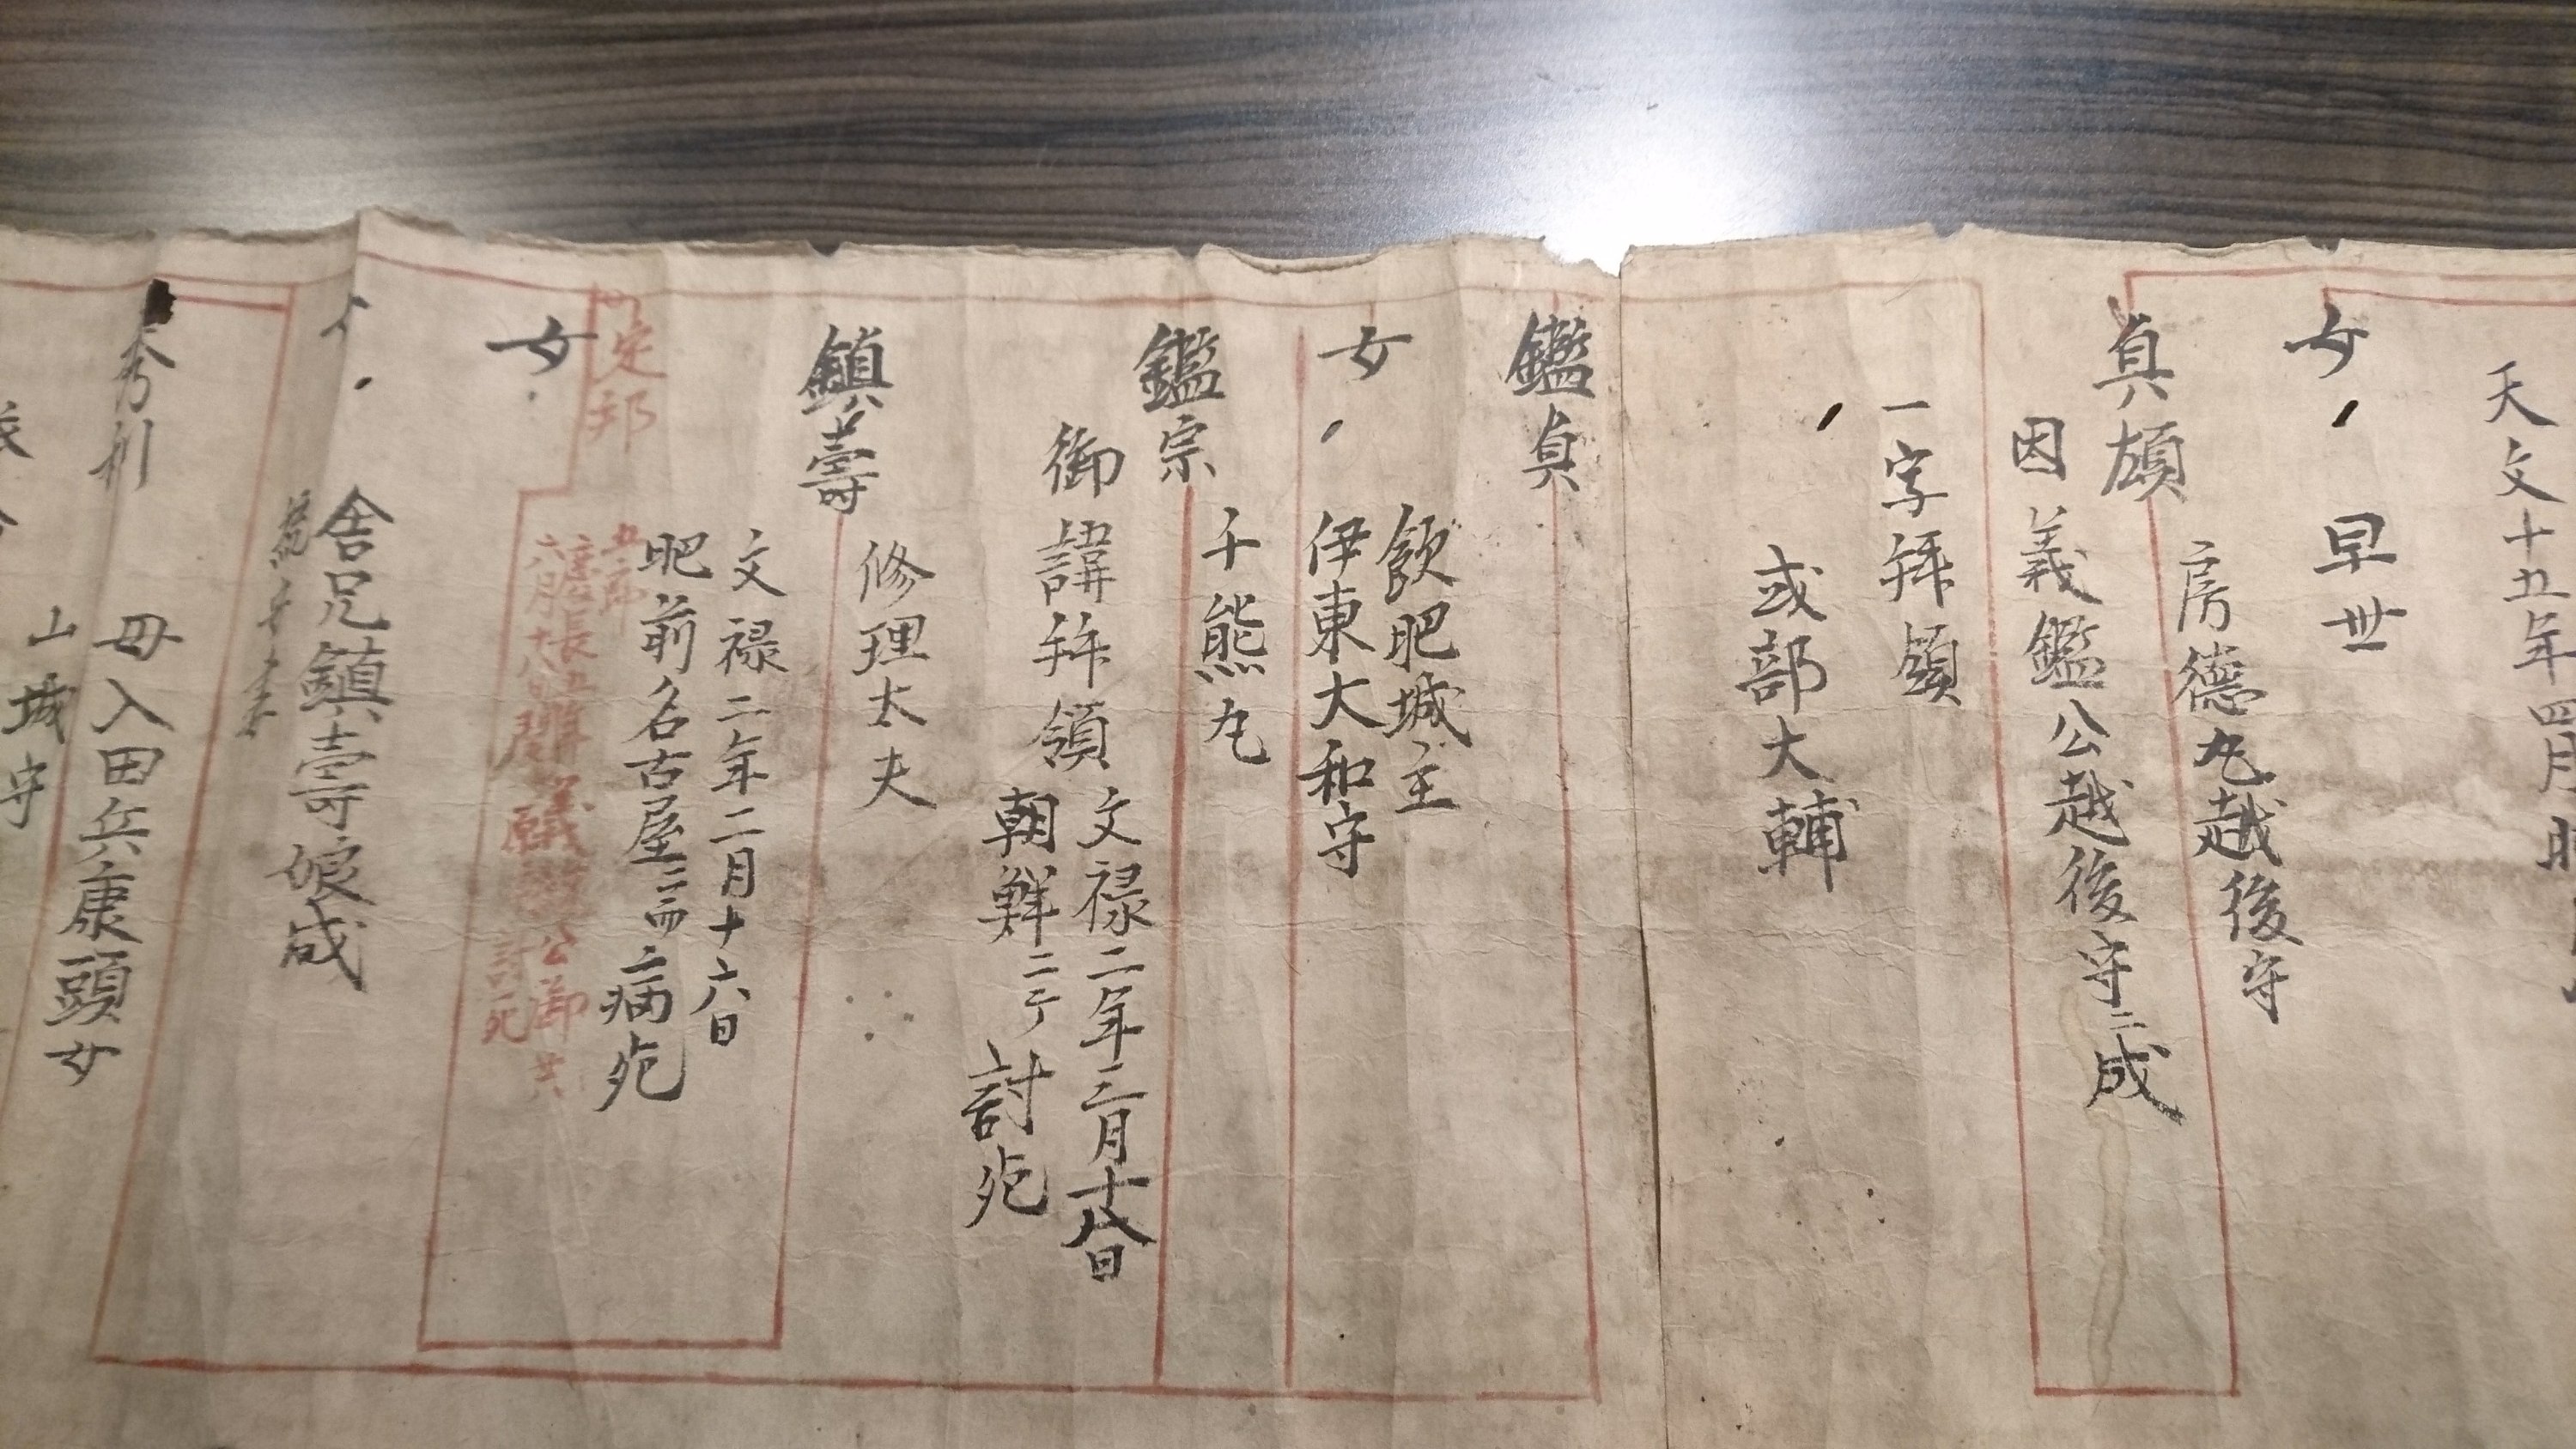 天文十五年四月
女、
早世
真頏
房德丸越後守
因義鑑公越後守ニ成
一字拜領
、
或部大輔
鑑真
女、
飫肥城主
伊東大和守
鑑宗
千熊丸
御諱拜領
文禄二年三月十八日
朝鮮ニテ討死
鎮壽
修理太夫
文禄二年二月十六日
肥前名古屋ニ而病死
定邦
女、
討死
女、
舎兄鎮壽娘成
秀利
母入田兵庫頭女
山城守